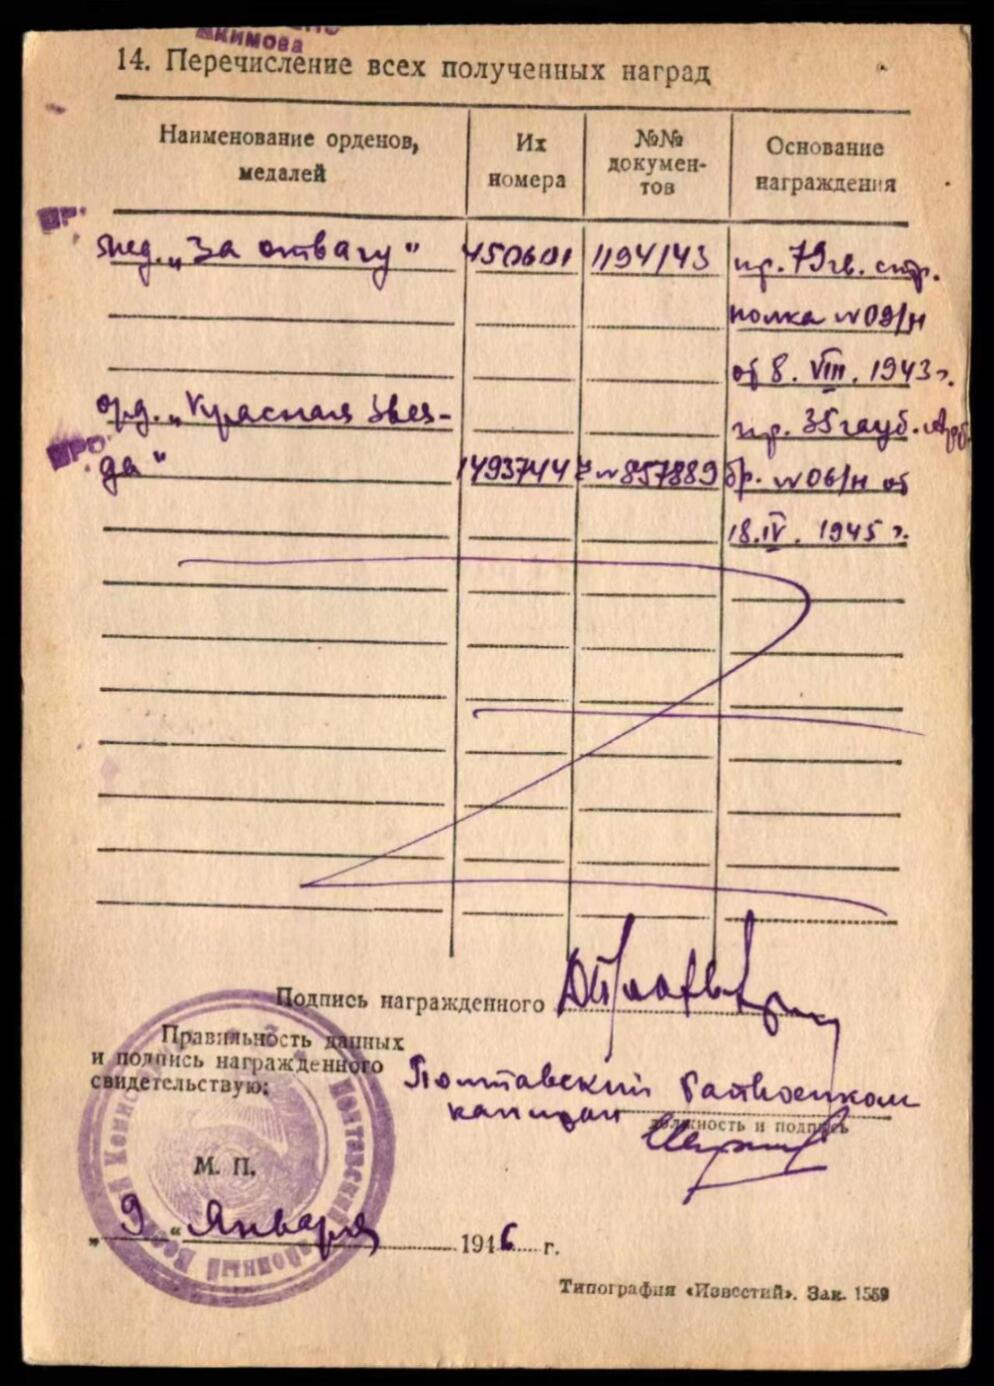 КИМОВА
14. Перечисление всех полученных наград
Наименование орденов, медалей
Их номера
№№ докумен-тов
Основание награждения
мед. „За отвагу" 450601 1194/43 пр. 79 гв. стр.
полка № 09/н
от 8. VIII. 1943 г.
орд. „Красная Звез- пр. 35 гауб. Арт.
да" 1493744 № 857889 бр. № 06/н от
18. IV. 1945 г.
Подпись награжденного
Правильность данных
и подпись награжденного
свидетельствую:
Полтавский Райвоенком
капитан
должность и подпись
М. П.
„ 9 " Января 1946 г.
Типография «Известий». Зак. 1559